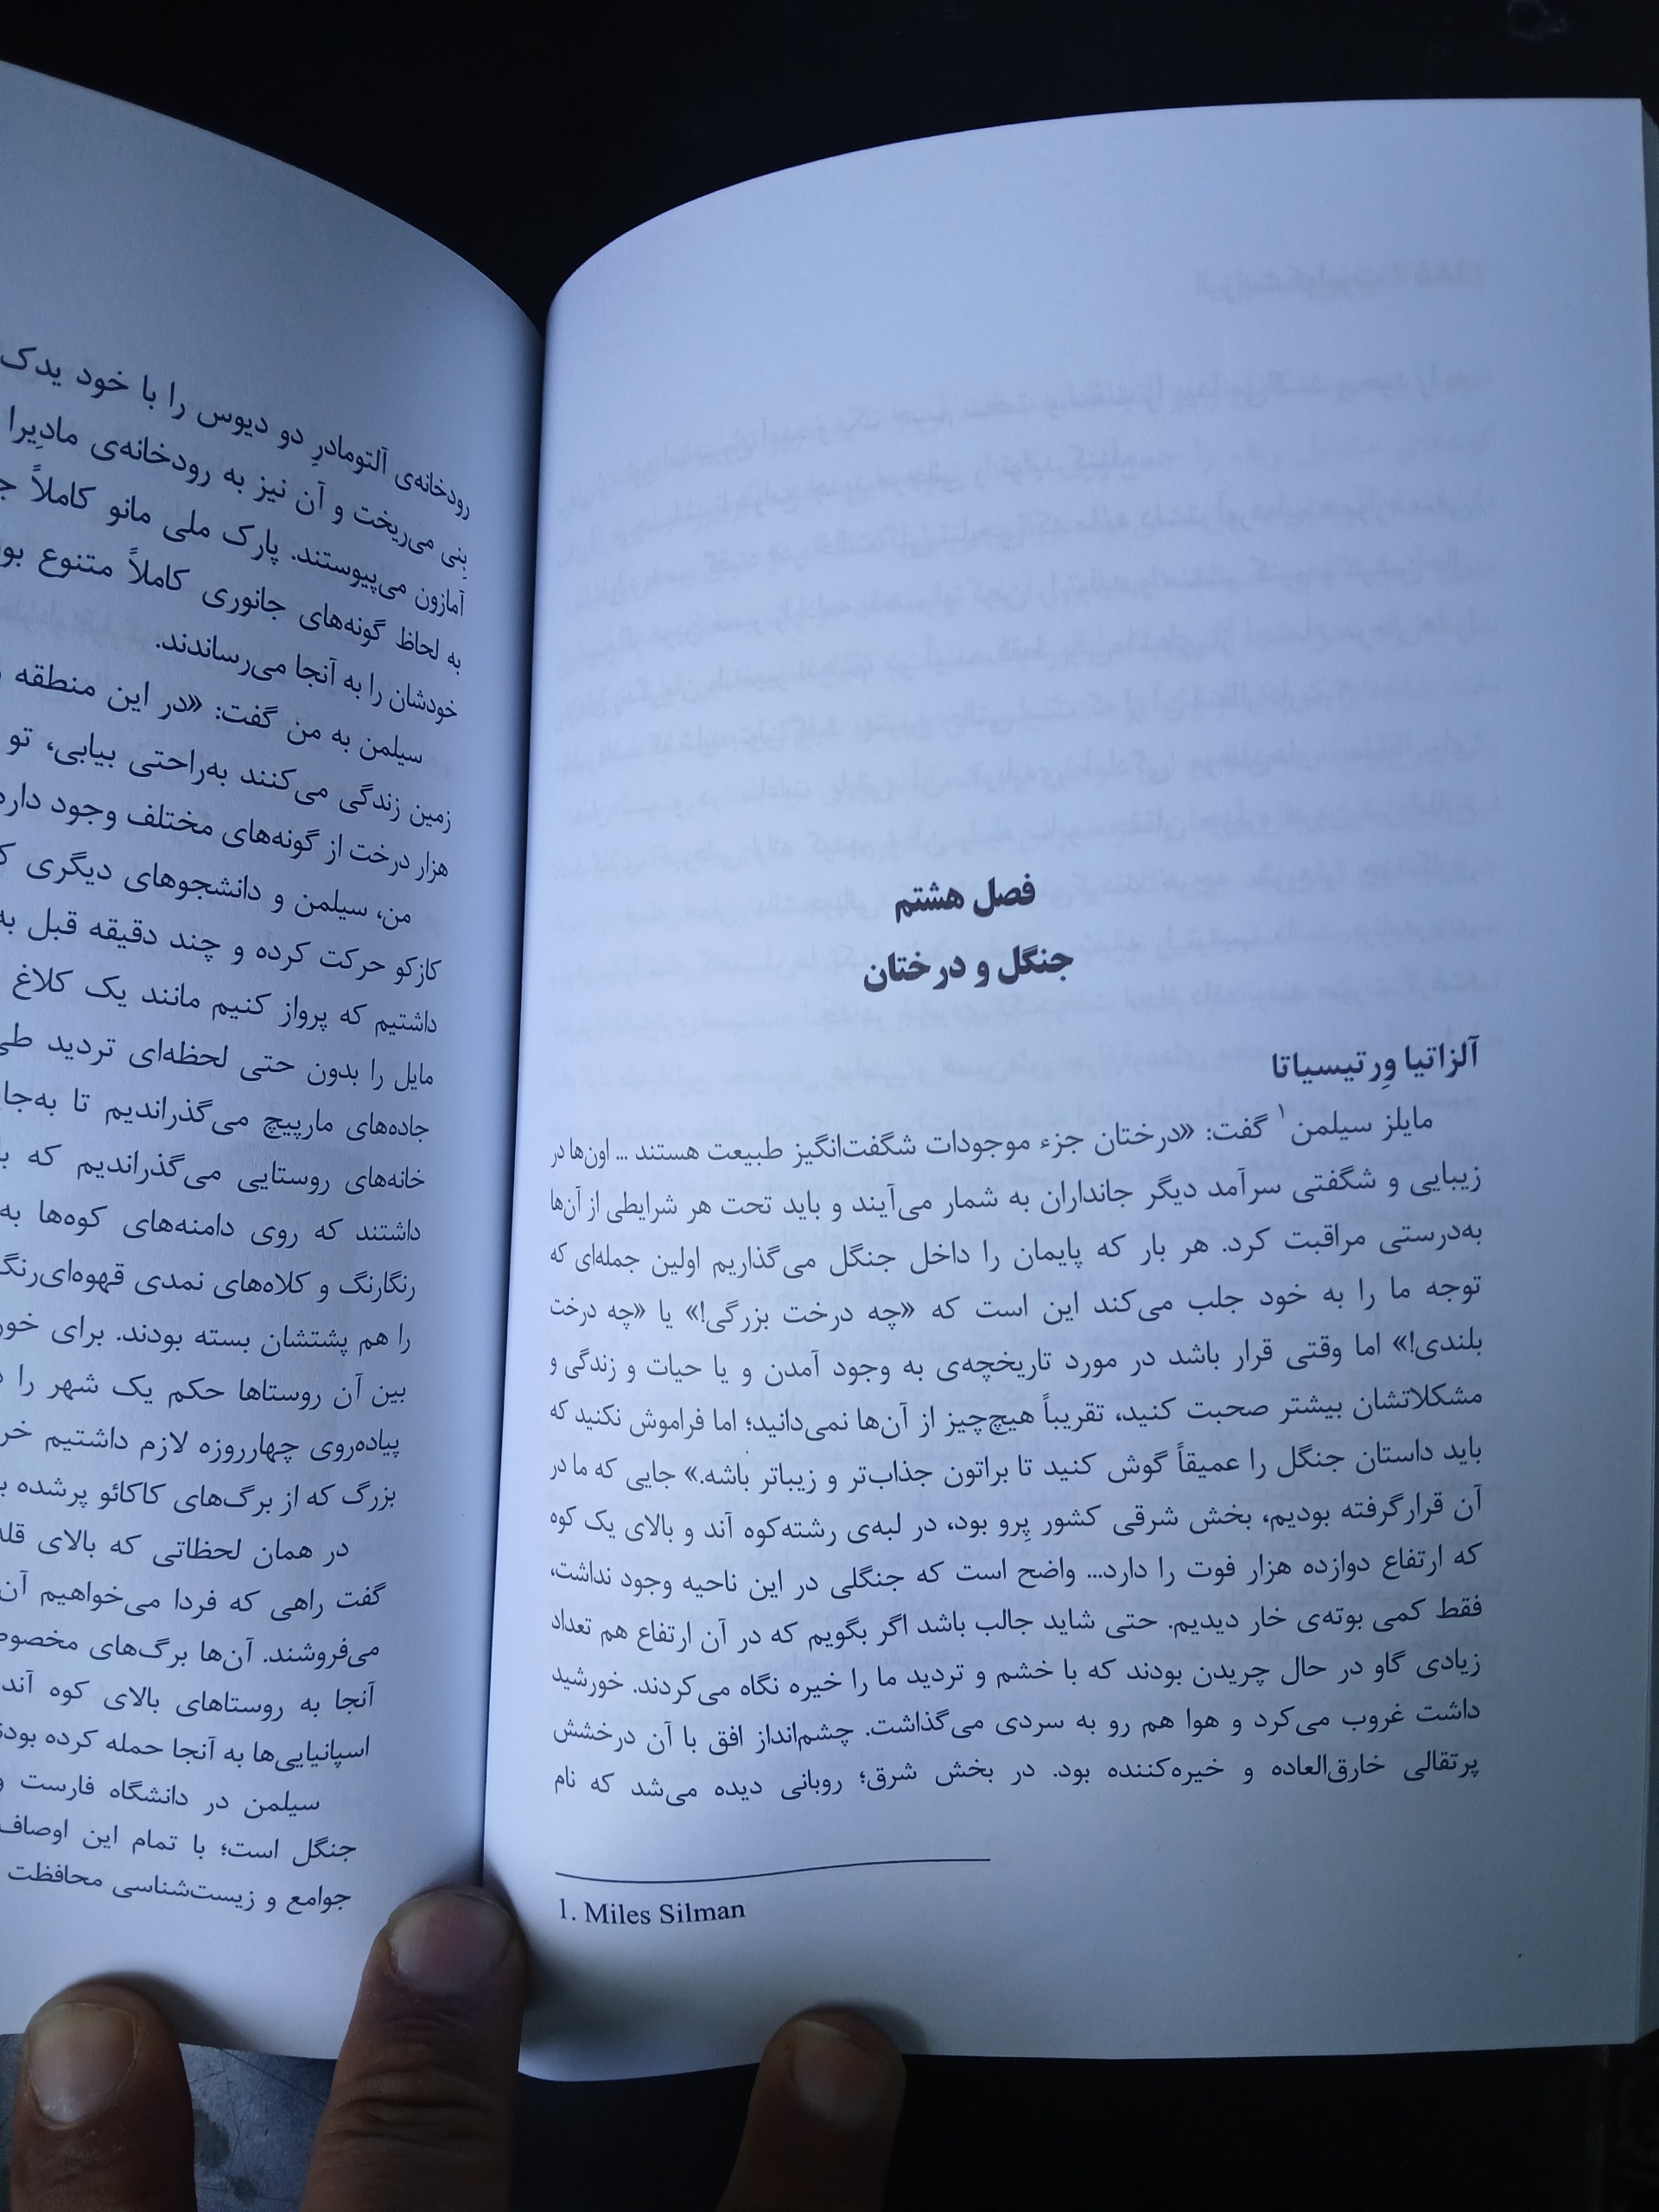 فصل هشتم
جنگل و درختان
آلزاتیا وِرتیسیاتا
مایلز سیلمن۱ گفت: «درختان جزء موجودات شگفت‌انگیز طبیعت هستند ... اون‌ها در
زیبایی و شگفتی سرآمد دیگر جانداران به شمار می‌آیند و باید تحت هر شرایطی از آن‌ها
به‌درستی مراقبت کرد. هر بار که پایمان را داخل جنگل می‌گذاریم اولین جمله‌ای که
توجه ما را به خود جلب می‌کند این است که «چه درخت بزرگی!» یا «چه درخت
بلندی!» اما وقتی قرار باشد در مورد تاریخچه‌ی به وجود آمدن و یا حیات و زندگی و
مشکلاتشان بیشتر صحبت کنید، تقریباً هیچ‌چیز از آن‌ها نمی‌دانید؛ اما فراموش نکنید که
باید داستان جنگل را عمیقاً گوش کنید تا براتون جذاب‌تر و زیباتر باشه.» جایی که ما در
آن قرارگرفته بودیم، بخش شرقی کشور پِرو بود، در لبه‌ی رشته‌کوه آند و بالای یک کوه
که ارتفاع دوازده هزار فوت را دارد... واضح است که جنگلی در این ناحیه وجود نداشت،
فقط کمی بوته‌ی خار دیدیم. حتی شاید جالب باشد اگر بگویم که در آن ارتفاع هم تعداد
زیادی گاو در حال چریدن بودند که با خشم و تردید ما را خیره نگاه می‌کردند. خورشید
داشت غروب می‌کرد و هوا هم رو به سردی می‌گذاشت. چشم‌انداز افق با آن درخشش
پرتقالی خارق‌العاده و خیره‌کننده بود. در بخش شرق؛ روبانی دیده می‌شد که نام
1. Miles Silman
رودخانه‌ی آلتومادرِ دو دیوس را با خود یدک
بِنی می‌ریخت و آن نیز به رودخانه‌ی مادِیرا
آمازون می‌پیوستند. پارک ملی مانو کاملاً
به لحاظ گونه‌های جانوری کاملاً متنوع
خودشان را به آنجا می‌رساندند.
سیلمن به من گفت: «در این منطقه
زمین زندگی می‌کنند به‌راحتی بیابی، تو
هزار درخت از گونه‌های مختلف وجود
من، سیلمن و دانشجوهای دیگری
کازکو حرکت کرده و چند دقیقه قبل
داشتیم که پرواز کنیم مانند یک کلاغ
مایل را بدون حتی لحظه‌ای تردید
جاده‌های مارپیچ می‌گذراندیم تا
خانه‌های روستایی می‌گذراندیم که
داشتند که روی دامنه‌های کوه‌ها به
رنگارنگ و کلاه‌های نمدی
را هم پشتشان بسته بودند. برای
بین آن روستاها حکم یک شهر را
پیاده‌روی چهارروزه لازم داشتیم
بزرگ که از برگ‌های کاکائو پرشده
در همان لحظاتی که بالای
گفت راهی که فردا می‌خواهیم
می‌فروشند. آن‌ها برگ‌های
آنجا به روستاهای بالای کوه
اسپانیایی‌ها به آنجا حمله کرده
سیلمن در دانشگاه فارست
جنگل است؛ با تمام این
جوامع و زیست‌شناسی محافظت